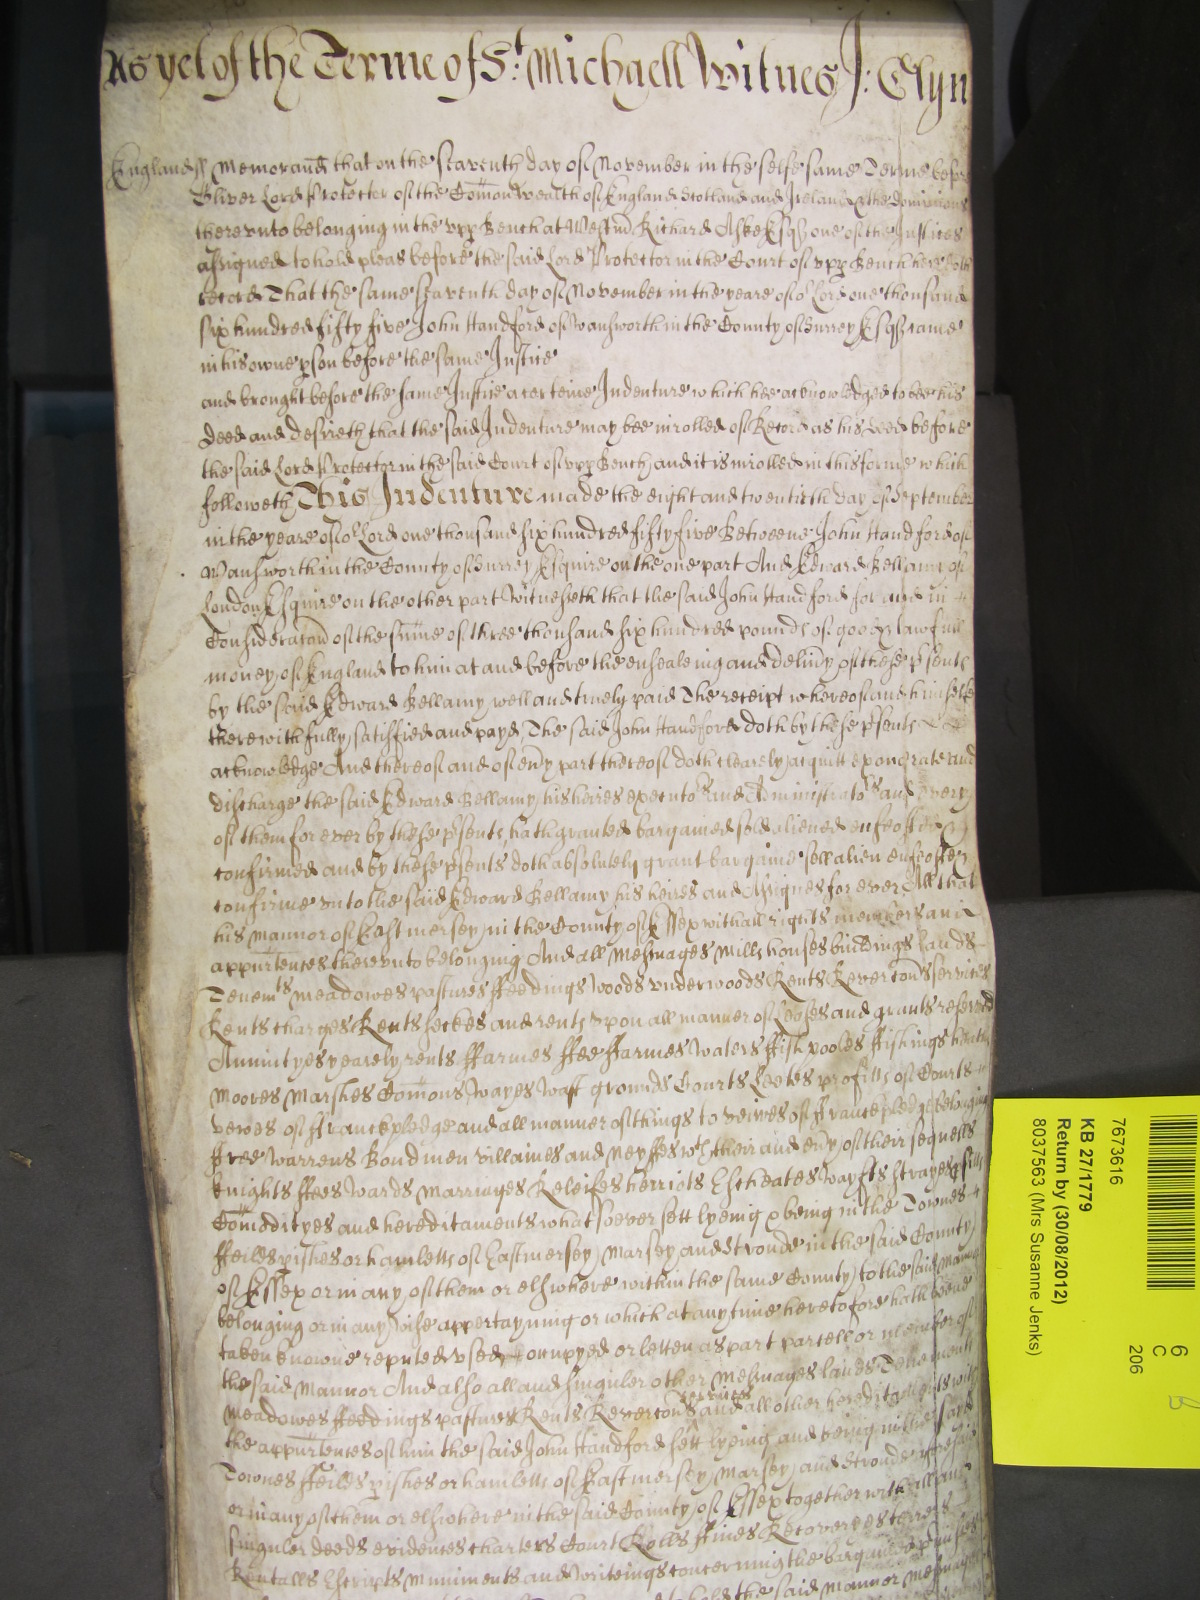 As yet of the Terme of St. Michaell Witnes J: Glyn
England ss Memorand that on the seaventh day of November in the selfe same Terme before
Oliver Lord Protector of the Comonwealth of England Scotland and Ireland & the dominions
thereunto belonging in the upp Bench at Westmr Richard Aske Esqr one of the Justices
assigned to hold pleas before the said Lord Protector in the Court of upp Bench here doth
record That the same seaventh day of November in the yeare of or Lord one thousand
six hundred fifty five John Handford of Wansworth in the County of Surrey Esqr came
in his owne pson before the same Justice
and brought before the same Justice a certeine Indenture which hee acknowledged to bee his
deed and desireth that the said Indenture may bee inrolled of Record as his deed before
the said Lord Protector in the said Court of upp Bench and it is inrolled in this forme which
followeth This Indenture made the eight and twentieth day of September
in the yeare of or Lord one thousand six hundred fifty five Betweene John Handford of
Wansworth in the County of Surrey Esquire on the one part And Edward Bellamy of
London Esquire on the other part Witnesseth that the said John Handford for and in
Consideracon of the sume of three thousand six hundred pounds of good & lawfull
money of England to him at and before the ensealeing and delivy of these psents
by the said Edward Bellamy well and truely paid The receipt whereof and himselfe
therewith fully satisfied and payd The said John Handford doth by these psents
acknowledge And thereof and of evy part thereof doth clearely acquitt exonerate and
discharge the said Edward Bellamy his heires executors and Administrators and every
of them for ever by these psents hath granted bargained sold aliened enfeoffed &
confirmed and by these psents doth absolutely grant bargaine sell alien enfeoffe &
confirme unto the said Edward Bellamy his heires and Assignes for ever All that
his Mannor of Eastmersey in the County of Essex with all rights members and
appurtences thereunto belonging And all Messuages Mills houses buildings Lands
Tenemts Meadowes pastures ffeedings woods underwoods Rents Revercons services
Rents charges Rents seckes and rents upon all manner of Leases and grants reserved
Annuityes yearely rents ffarmes ffee ffarmes Waters ffishpooles ffishings heaths
Moores Marshes Comons Wayes Wast grounds Courts Leetes profitts of Courts
vewes of ffranckpledge and all manner of things to veiwes of ffranckpledge belonging
ffree Warrens Bondmen villaines and Neyffes wth their and evy of their sequells
knights ffees Wards Marriages Releifes herriots Escheates Wayfts Strayes pfitts
Comodityes and hereditaments whatsoever sett lyeing & being in the Townes
ffeilds pishes or hamletts of Eastmersey Marsey and Stroude in the said County
of Essex or in any of them or elswhere within the same County to the said Mannor
belonging or in any wise appertayning or which at any time heretofore hath beene
taken knowne reputed used occupyed or letten as part parcell or member of
the said Mannor And also all and singuler other Messuages lands Tenements
Meadowes ffeedings pastures Rents Revercons services and all other hereditaments with
the appurtences of him the said John Handford sett lyeing and being in the said
Townes ffeilds pishes or hamletts of Eastmersey Marsey and Stroude aforesaid
or in any of them or elswhere in the said County of Essex together with all and
singuler deeds evidences charters Court Rolls ffines Recoveryes terrers
Rentalls Escripts Muniments and Writeings concerning the bargained pmisses
the said Mannor Messuages
7673616
KB 27/1779
Return by (30/08/2012)
8037563 (Mrs Susanne Jenks)
6
C
206